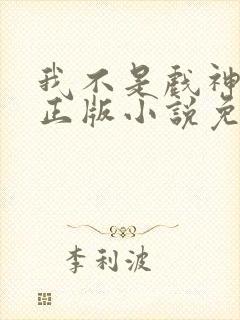 我不是戏神
正版小說免
李利波